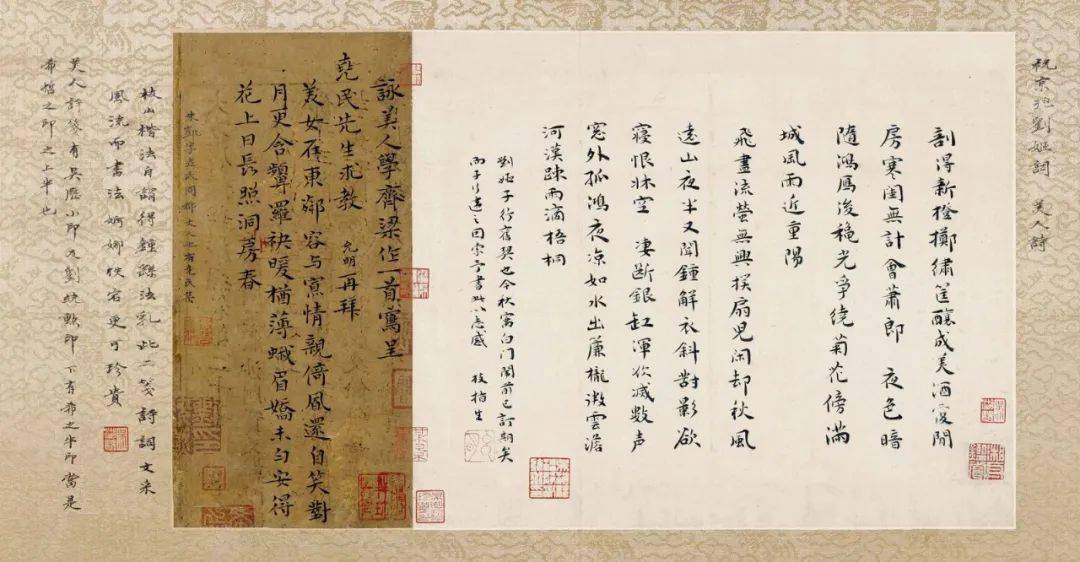 祝京兆劉姬詞 美人詩
剖得新橙擲繡筐釀成美酒復閒
房寒閨無計會蕭郎 夜色暗
隨鴻雁後穐光爭繞菊花傍滿
城風雨近重陽
飛盡流螢無興撲扇兒閑却秋風
遠山夜半又聞鐘解衣斜對影欲
寢恨牀空 凄斷銀缸渾欲滅數声
窓外孤鴻夜涼如水出簾櫳微雲澹
河漢疎雨滴梧桐
劉姬子行舊契也今秋寓白门闈前已訂期矣
書此以志感 枝指生
詠美人學齊梁作一首寫呈
堯民先生求教 允明再拜
美女在東鄰容与窓情親倚風還自笑對
月更含顰羅袂暖猶薄蛾眉嬌未勻安得
花上日長照洞房春
朱凱字堯民同郡文人也有堯民集
枝山楷法自謂得鍾繇法乳此二箋詩詞文采
風流而書法婀娜佚宕更可珍貴
美人詩箋有吳廷小印 劉統勲印下有希之半印當是
希哲之印之上半也